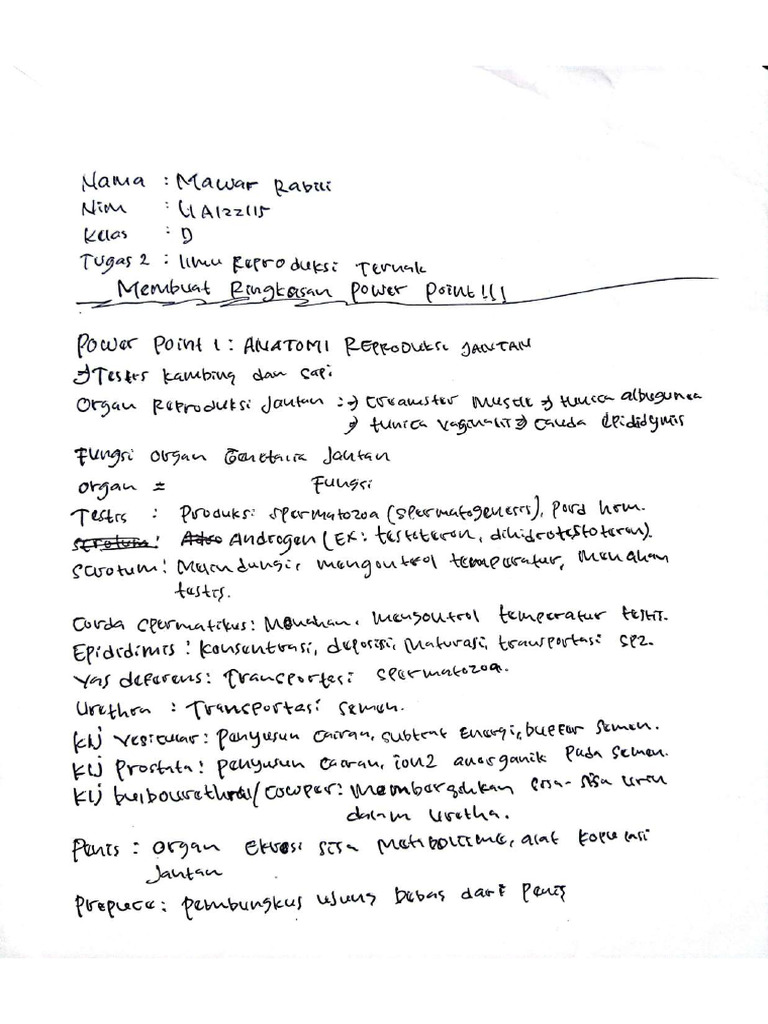 Nama : Mawar Rabiii
Nim : L1A122115
Kelas : D
Tugas 2 : Ilmu Reproduksi Ternak
Membuat Ringkasan Power Point!!!
Power Point 1 : ANATOMI REPRODUKSI JANTAN
→ Testis kambing dan sapi
Organ Reproduksi Jantan : → Creamster Muscle → tunica albugunea
→ tunica vaginalis → Cauda Epididymis
Fungsi organ Genetalia Jantan
organ = Fungsi
Testis : Produksi spermatozoa (spermatogenesis), Prod horm.
Androgen (Ex: testoteron, dihidrotestoteron).
Scrotum : Melindungi, mengontrol temperatur, menahan
testis.
Corda spermatikus : Menahan, mengontrol temperatur testis.
Epididimis : konsentrasi, deposisi, maturasi, transportasi spz.
Vas deferens : Transportasi spermatozoa.
Urethra : Transportasi semen.
Klj Vesicular : Penyusun cairan, subtrat Energi, buffer semen.
Klj Prostata : Penyusun cairan, ion2 anorganik pada semen.
Klj bulbourethral/cowper : Membersihkan sisa-sisa urin
dalam uretha.
Penis : organ Ekresi sisa Metabolisme, alat kopulasi
Jantan
Prepuce : Pembungkus ujung bebas dari Penis